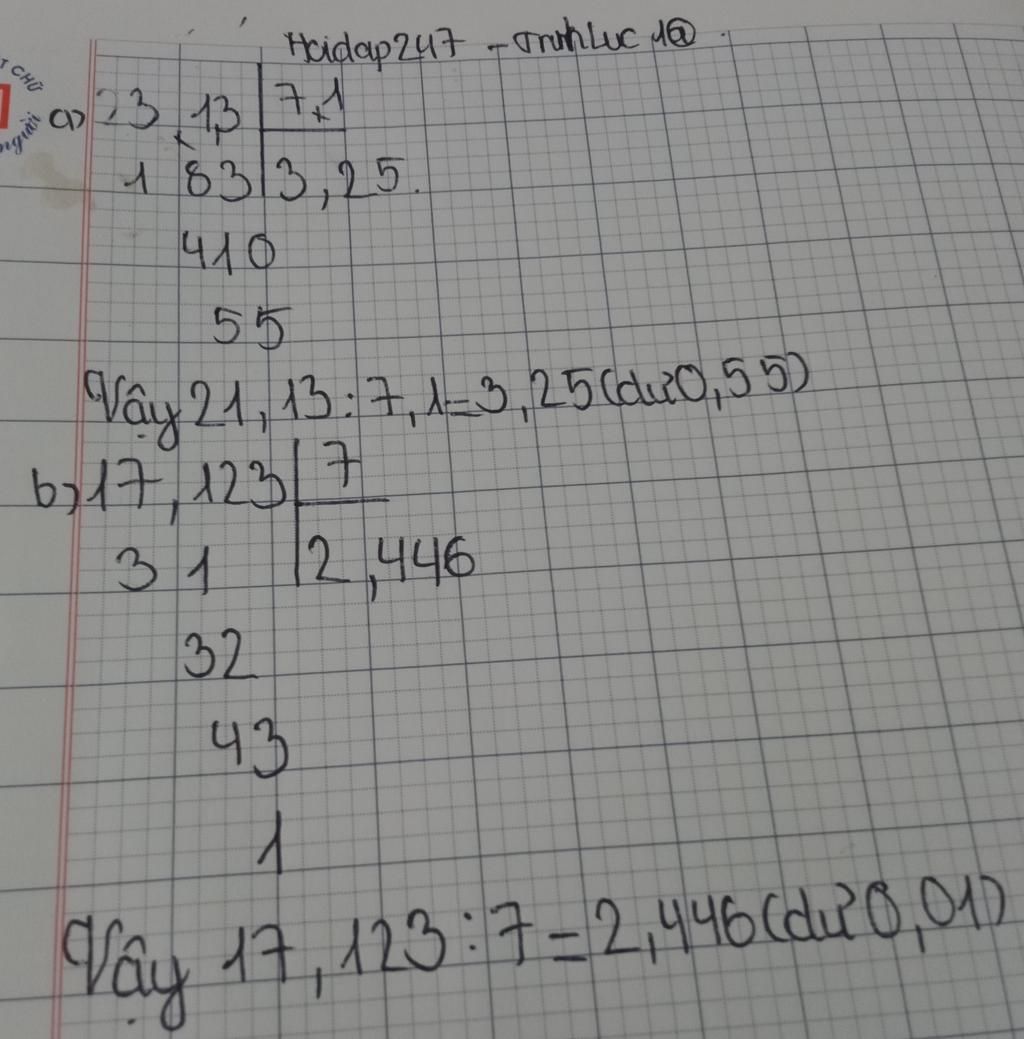 Hoidap247 - TrinhLuc1@
T CHỮ
người
a) 23,13 7,1
1 83 3,25.
410
55
Vậy 21,13:7,1=3,25(dư0,55)
b) 17,123 7
3 1 2,446
32
43
1
Vậy 17,123:7=2,446(dư0,01)